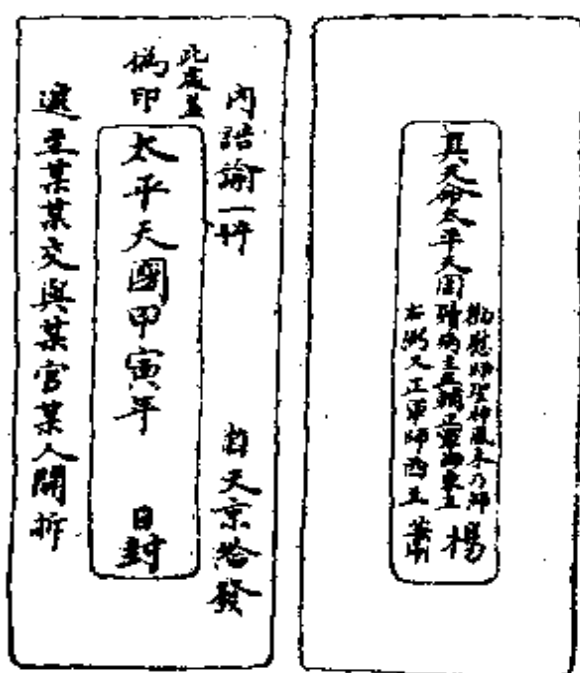 真天命太平天囯
勸慰師聖神風禾乃師
贖病主左輔正軍師東王
楊
右弼又正軍師西王
蕭
內誥諭一件
自天京發
此處蓋
偽印
太平天國甲寅年 日封
遞至某某交與某官某人開拆